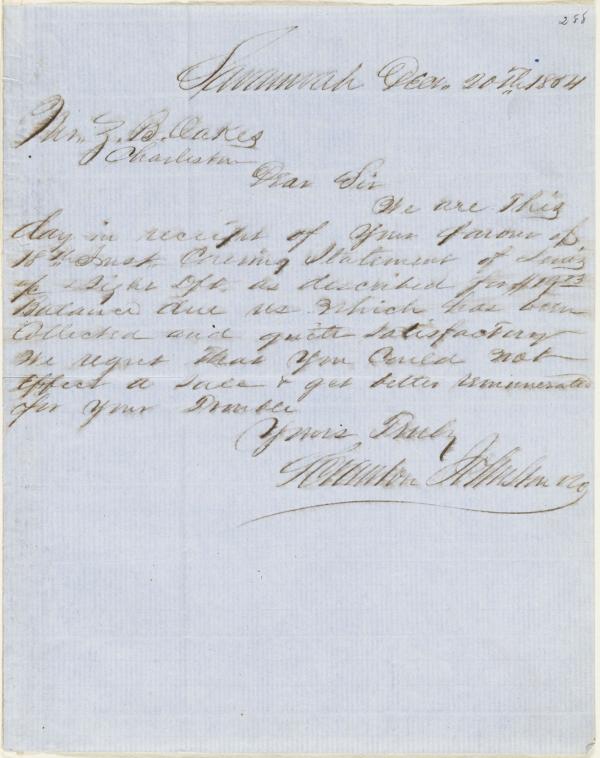 288
Savannah Dec. 20th 1854
Mr. Z. B. Oakes
Charleston
Dear Sir
We are this
day in receipt of your favour of
18th Inst Covering Statement of
& Sight Dft. as described for
Balance due us which has been
Collected and quite satisfactory
We regret that you Could not
Effect a Sale & get better remuneration
for your Trouble
Yours Truly
Scranton Johnston & Co